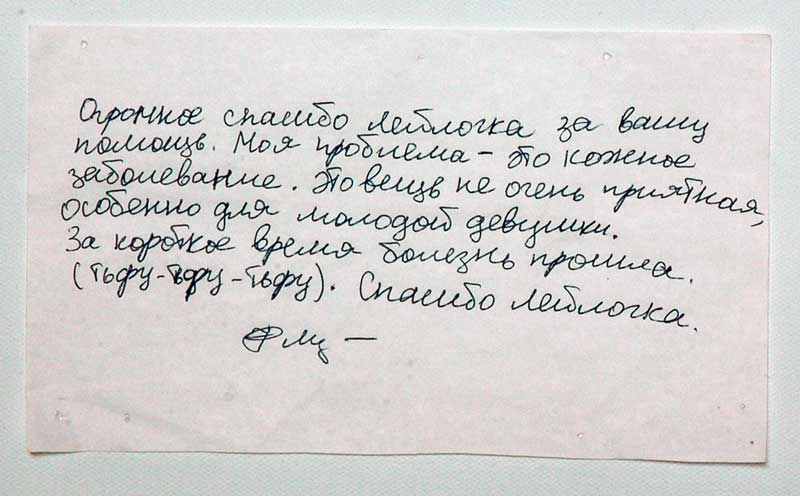 Огромное спасибо Лейлочка за вашу
помощь. Моя проблема – это кожное
заболевание. Это вещь не очень приятная,
особенно для молодой девушки.
За короткое время болезнь прошла.
(тьфу-тьфу-тьфу). Спасибо Лейлочка.